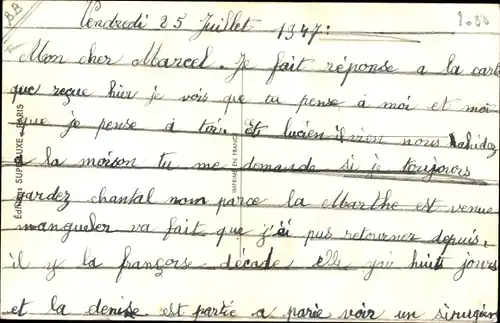 B.B
Vendredi 25 Juillet 1947:
2.00
Mon cher Marcel. Je fait réponse a la carte
que reçue hier je vois que tu pense à moi et moi
que je pense à toi. Et lucien nous
a la moison tu me demande si je toujours
gardez chantal nom parce la Marthe est venue
va fait que j'ai pus retourner depuis.
il y la françois décade elle j'ai huits jours
et la denise est partie a parie voir un sirurgien
Éditions SUPERLUXE - PARIS
IMPRIMÉ EN FRANCE